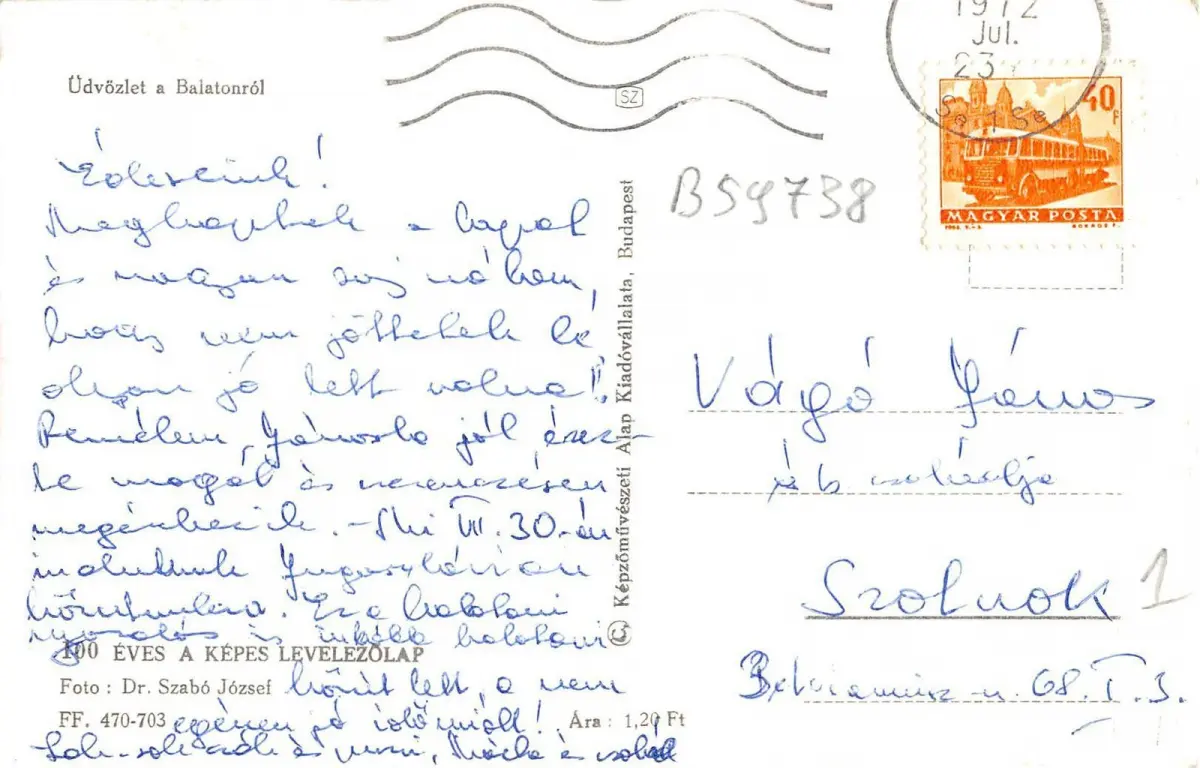 Üdvözlet a Balatonról
Édeseink!
Megkaptuk a lapot
és nagyon
hogy nem jöttetek le
olyan jó lett volna!
Remélem, Jánoska jól érez-
te magát és szerencsésen
megérkezik. - Mi VII. 30-án
indultunk Jugoszlávián
körútra. Ez a balatoni
nyaralás is inkább balatoni
körút lett, a nem
egészen jó idő miatt!
és puszi, és család
100 ÉVES A KÉPES LEVELEZŐLAP
Foto : Dr. Szabó József
FF. 470-703
Ára : 1,20 Ft
© Képzőművészeti Alap Kiadóvállalata, Budapest
SZ
1972
Jul.
23
40 f
MAGYAR POSTA
B59738
Vágó János
és családja
Szolnok
1
u. 68. I. 3.